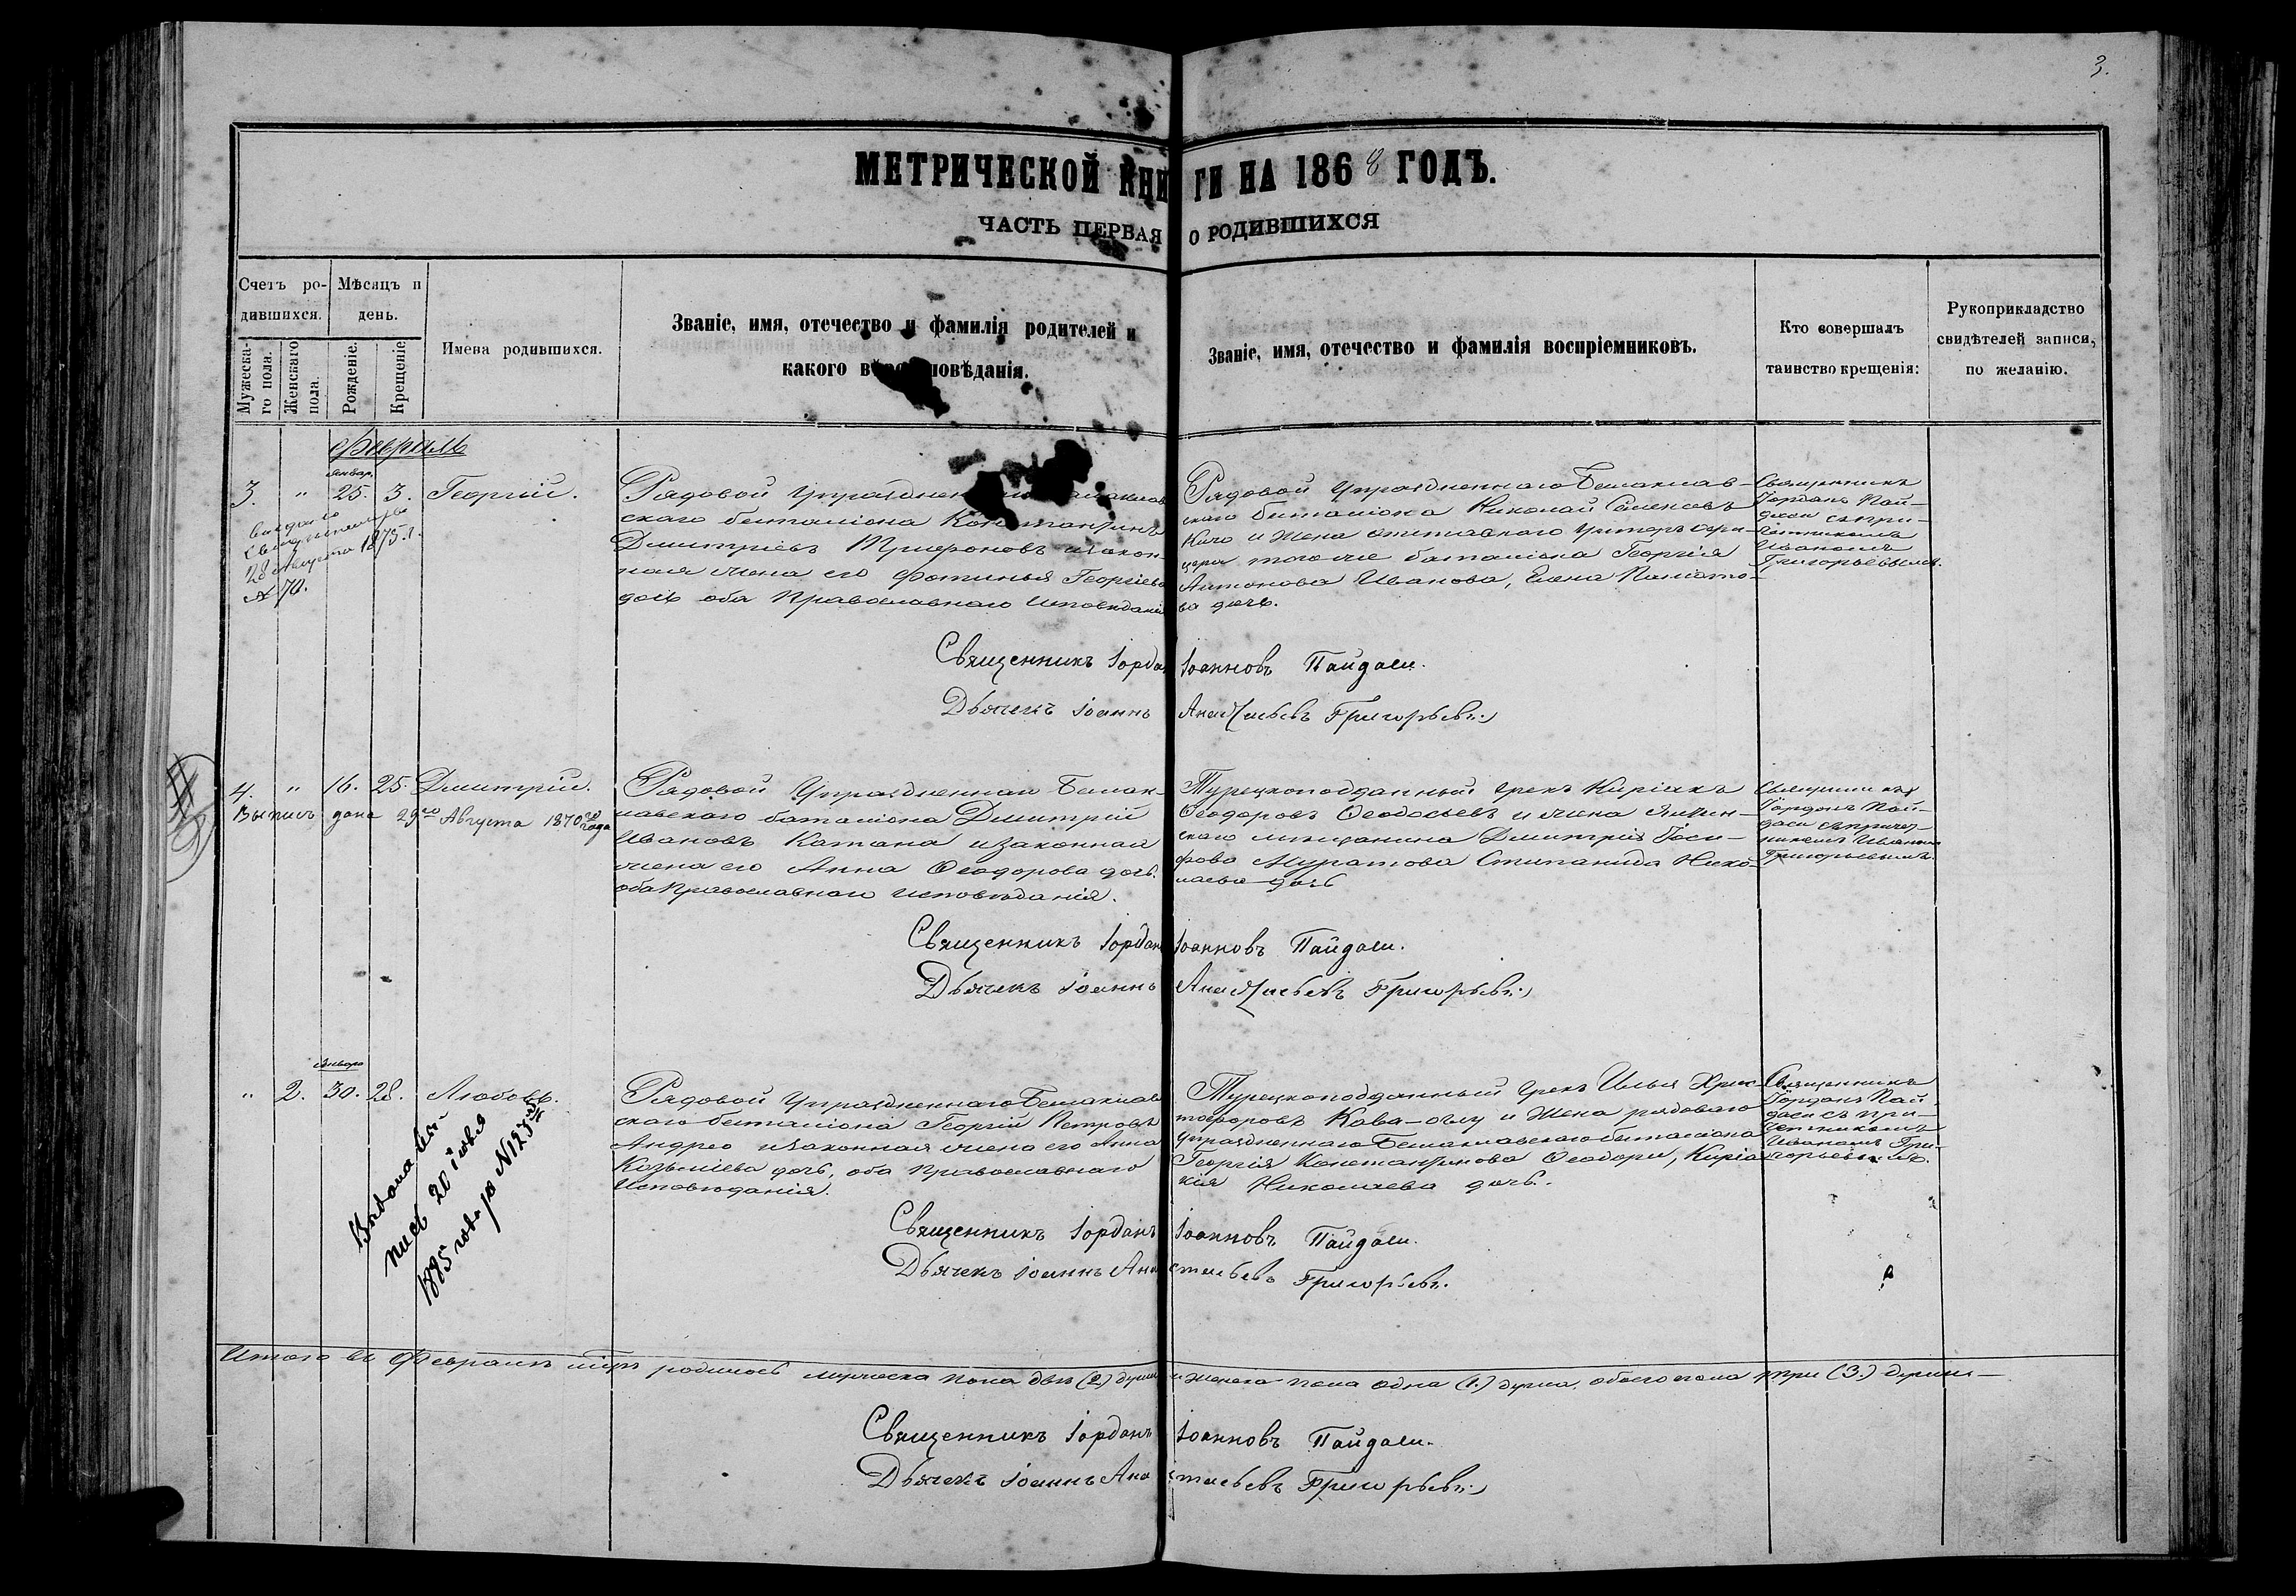 3.
МЕТРИЧЕСКОЙ КНИГИ НА 1868 ГОДЪ.
ЧАСТЬ ПЕРВАЯ О РОДИВШИХСЯ
Счетъ ро-
дившихся.
Мужеска-
го пола.
Женскаго
пола.
Мѣсяцъ и
день.
Рожденіе.
Крещеніе
Имена родившихся.
Званіе, имя, отечество и фамилія родителей и
какого вѣроисповѣданія.
Званіе, имя, отечество и фамилія воспріемниковъ.
Кто совершалъ
таинство крещенія:
Рукоприкладство
свидѣтелей записи,
по желанію.
Февраль
Январ.
3. " 25. 3. Георгій.
28 Августа 1875 г.
№ 70.
Рядовой Упраздненнаго
скаго баталіона Константинъ
Дмитріевъ Трифоновъ и закон-
ная жена его Фотинья Георгіева
дочь оба Православнаго исповѣданія
Рядовой Упраздненнаго Балаклав-
скаго баталіона Николай Семеновъ
Кичо и Жена отставнаго Унтеръ офи-
цера того же баталіона Георгія
Антонова Иванова, Елена
ва дочь.
Священникъ
Іорданъ Пай-
даси съ при-
четникомъ
Иваномъ
Григорьевымъ.
Священникъ Іорданъ Іоанновъ Пайдаси.
Дьячекъ Іоаннъ Анастасьевъ Григорьевъ
4. " 16. 25. Дмитрій.
Выпись дана 29го Августа 1870го года
Рядовой Упраздненнаго Балак-
лавскаго баталіона Дмитрій
Ивановъ Катана и законная
жена его Анна Ѳеодорова дочь.
оба Православнаго исповѣданія.
Турецкоподданный Грекъ Киріакъ
Ѳеодоровъ Ѳеодосьевъ и жена
скаго мѣщанина Дмитрія Іоси-
фова Муратова Степанида Нико-
лаева дочь
Священникъ
Іорданъ Пай-
даси съ причет-
никомъ Иваномъ
Григорьевымъ.
Священникъ Іорданъ Іоанновъ Пайдаси.
Дьячекъ Іоаннъ Анастасьевъ Григорьевъ
Января
" 2. 30. 28. Любовь.
Выдана вы-
пись 20 іюня
1885 года за №123
Рядовой Упраздненнаго Балаклав
скаго баталіона Георгій Петровъ
Андрео и законная жена его Анна
Козьміева дочь, оба православнаго
Исповѣданія.
Турецкоподданный Грекъ Илья Хрис-
тофоровъ Кава-оглу и Жена рядоваго
упраздненнаго Балаклавскаго баталіона
Георгія Константинова Ѳеодори, Киріа-
кія Николаева дочь.
Священникъ
Іорданъ Пай-
даси съ при-
четникомъ
Иваномъ Гри-
горьевымъ.
Священникъ Іорданъ Іоанновъ Пайдаси.
Дьячекъ Іоаннъ Анастасьевъ Григорьевъ.
Итого въ Февралѣ м-цѣ родилось мужеска пола двѣ (2) души и женска пола одна (1.) душа, обоего пола три (3.) души
Священникъ Іорданъ Іоанновъ Пайдаси.
Дьячекъ Іоаннъ Анастасьевъ Григорьевъ